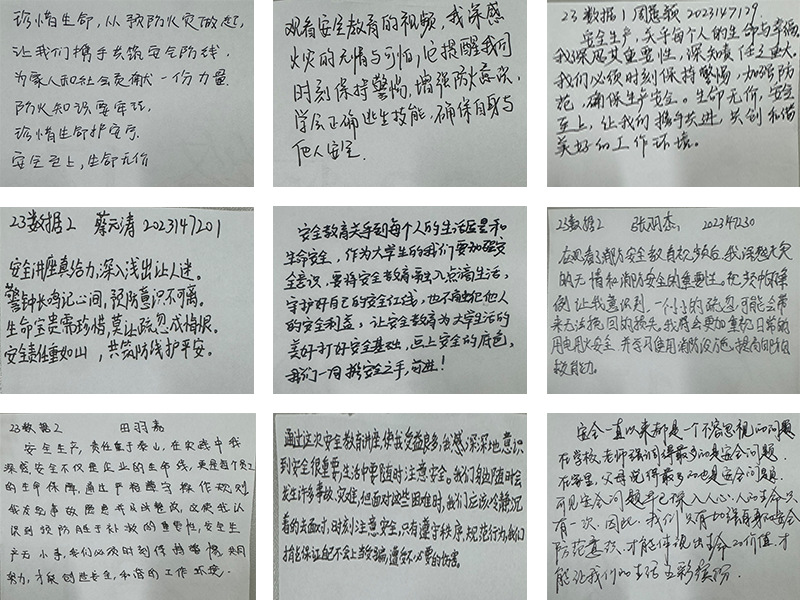 珍惜生命,从预防火灾做起,
让我们携手共筑安全防线,
为家人和社会贡献一份力量.
防火知识要牢记,
珍惜生命护安宁.
安全至上,生命无价
观看安全教育的视频,我深感
火灾的无情与可怕,它提醒我们
时刻保持警惕,增强防火意识,
学会正确逃生技能,确保自身与
他人安全.
23 数据1 周慧颖 2023147129
安全生产,关乎每个人的生命与幸福,
我深感其重要性,深知责任之重大,
我们必须时刻保持警惕,加强防
范,确保生产安全。生命无价,安全
至上,让我们携手共进,共创和谐
美好的工作环境。
23数据2 蔡元清 2023147201
安全讲座真给力,深入浅出让人迷。
警钟长鸣记心间,预防意识不可离。
生命宝贵需珍惜,莫让疏忽成悔恨。
安全责任重如山,共筑防线护平安。
安全教育关乎到每个人的生活质量和
生命安全,作为大学生的我们要加强安
全意识,要将安全教育融入点滴生活,
守护好自己的安全红线,也不触犯他人
的安全利益,让安全教育为大学生活的
美好打好安全基础,点上安全的底色,
我们一同携安全之手,前进!
23数据2 张羽杰,
在观看了消防安全教育视频后,我深感火灾
的无情和消防安全的重要性。视频中的
例让我意识到,一个小的疏忽可能会带
来无法挽回的损失。我将会更加重视日常的
用电用火安全,并学习使用消防设施,提高自防自
救能力。
23数据2 田羽嘉
安全生产,责任重于泰山,在实践中我
深感,安全不仅是企业的生命线,更是每个员工
的生命保障,通过严格遵守操作规则
我发现事故隐患并及时整改,这使我认
识到预防胜于补救的重要性,安全生
产无小事,我们必须时刻保持警惕,共同
努力,才能创造安全,和谐的工作环境.
通过这次安全教育讲座,使我受益良多,我感深深地意识
到安全很重要,生活中要随时注意安全。我们身边随时会
发生许多事故、灾难,但面对这些困难时,我们应该冷静沉
着的去面对,时刻注意安全,只有遵守秩序,规范行为,我们
才能保证自己不会上当受骗,遭受不必要的伤害。
安全一直以来都是一个不容忽视的问题
在学校,老师强调得最多的是安全问题.
在家里,父母说得最多的也是安全问题.
可见安全问题早已深入人心.人的生命只
有一次,因此,我们只有加强自身的安全
防范意识,才能体现出生命的价值,才
能让我们的生活五彩缤纷.